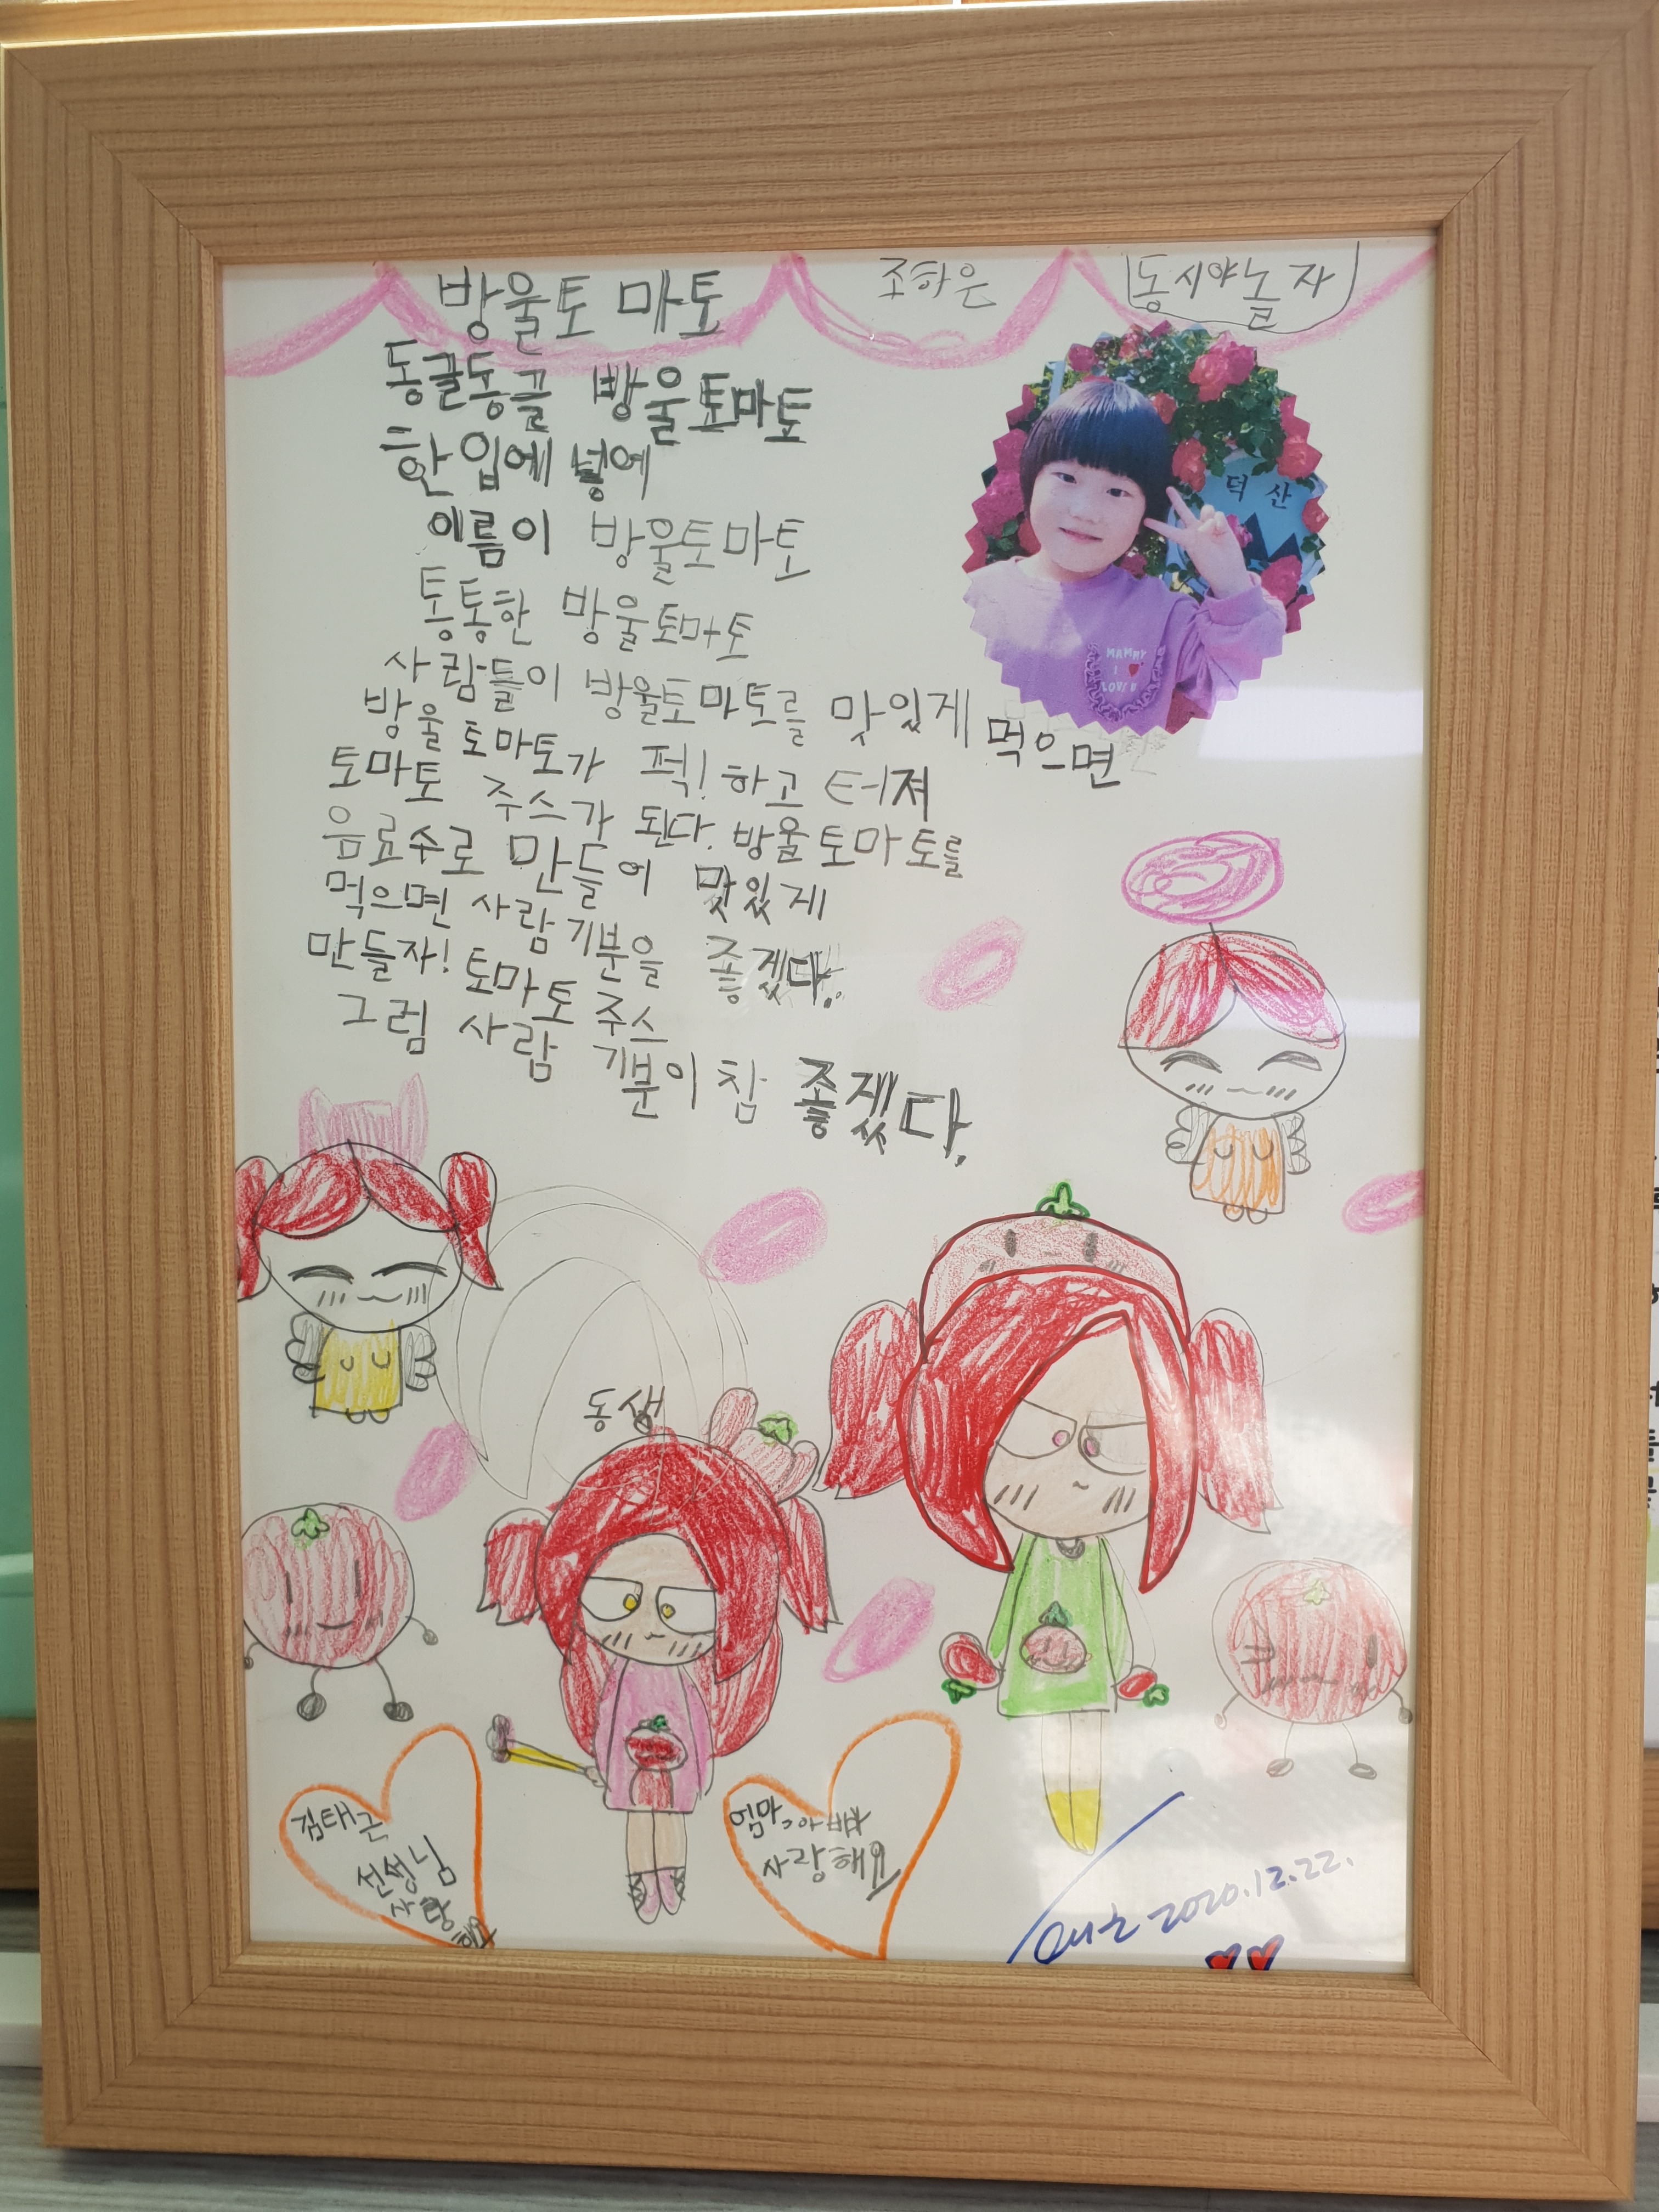 방울토마토
조하은
동시야놀자
동글동글 방울토마토
한입에 넣에
이름이 방울토마토
통통한 방울토마토
사람들이 방울토마토를 맛있게 먹으면
방울토마토가 퍽! 하고 터져
토마토 주스가 된다. 방울토마토를
음료수로 만들어 맛있게
먹으면 사람기분을 좋겠다.
만들자! 토마토 주스
그럼 사람 기분이 참 좋겠다.
덕산
MAMMY
I
LOVE U
동생
김태근
선생님
사랑
해요
엄마, 아빠
사랑해요
2020.12.22.